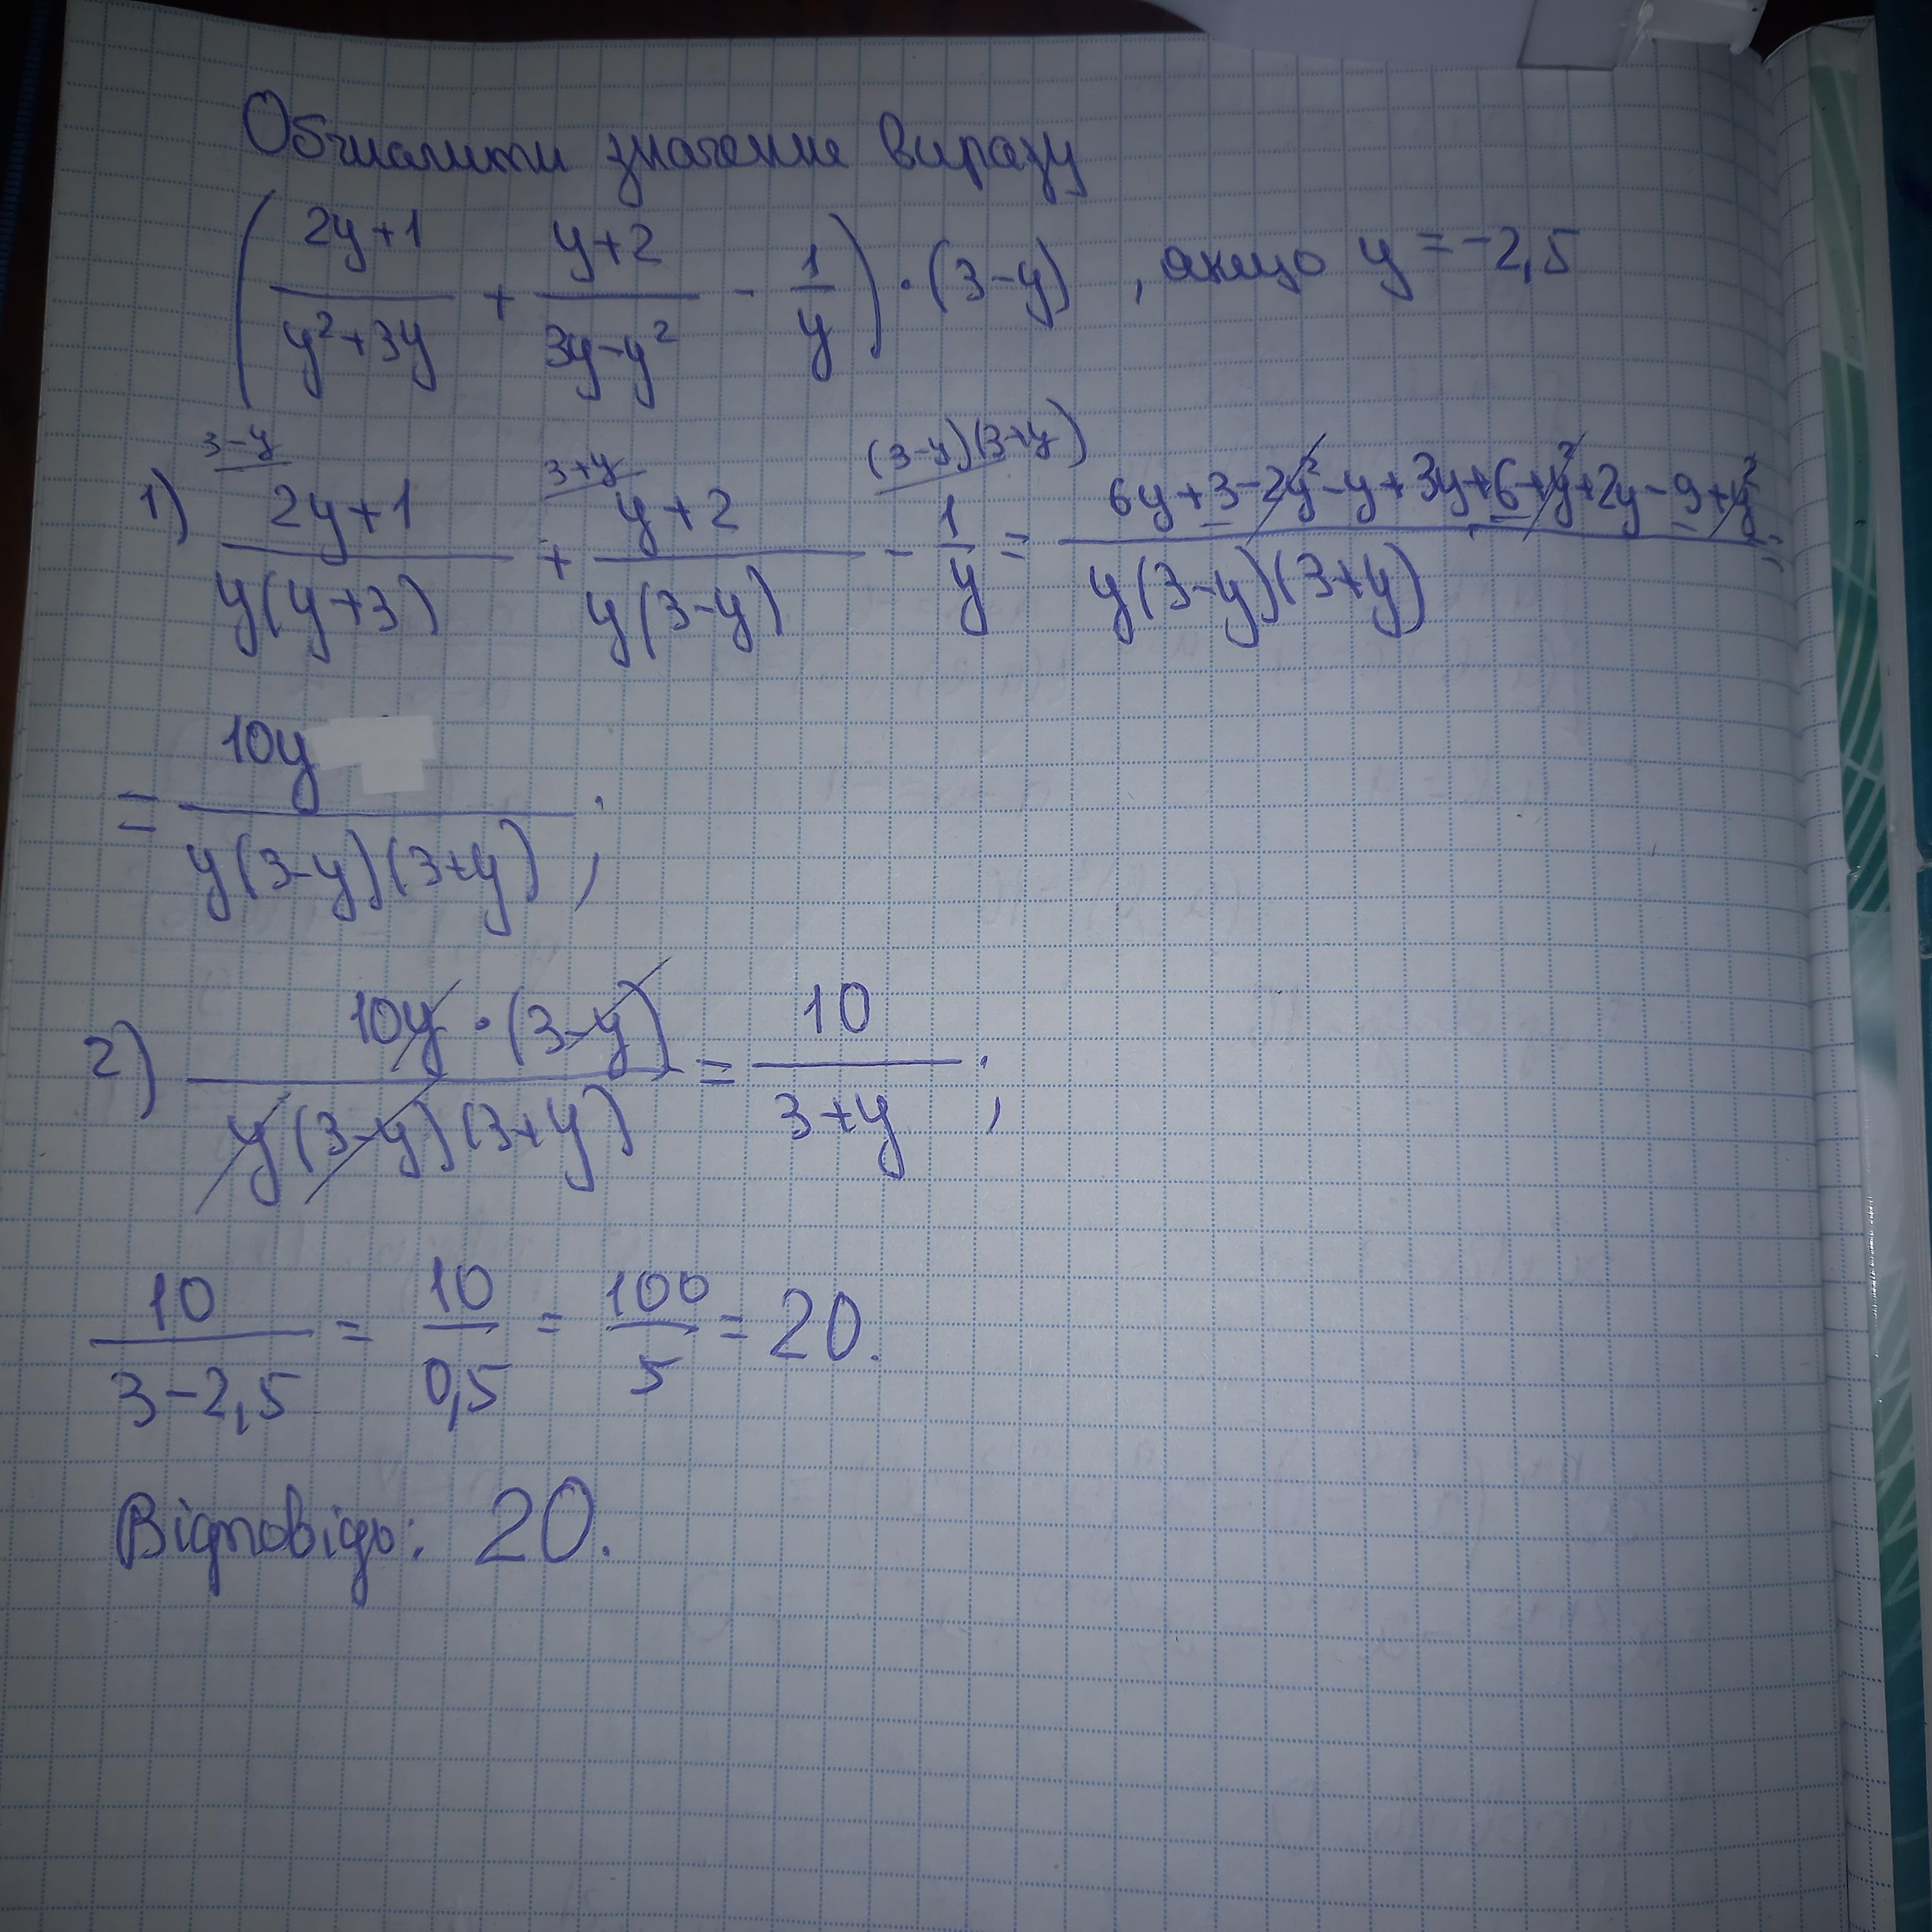 Обчислити значення виразу
(2y+1/y²+3y + y+2/3y-y² - 1/y) · (3-y), якщо y = -2,5
3-y 3+y (3-y)(3+y)
1) 2y+1/y(y+3) + y+2/y(3-y) - 1/y = 6y+3-2y²-y+3y+6+y²+2y-9+y²/y(3-y)(3+y) =
= 10y/y(3-y)(3+y) ;
2) 10y·(3-y)/y(3-y)(3+y) = 10/3+y ;
10/3-2,5 = 10/0,5 = 100/5 = 20.
Відповідь: 20.